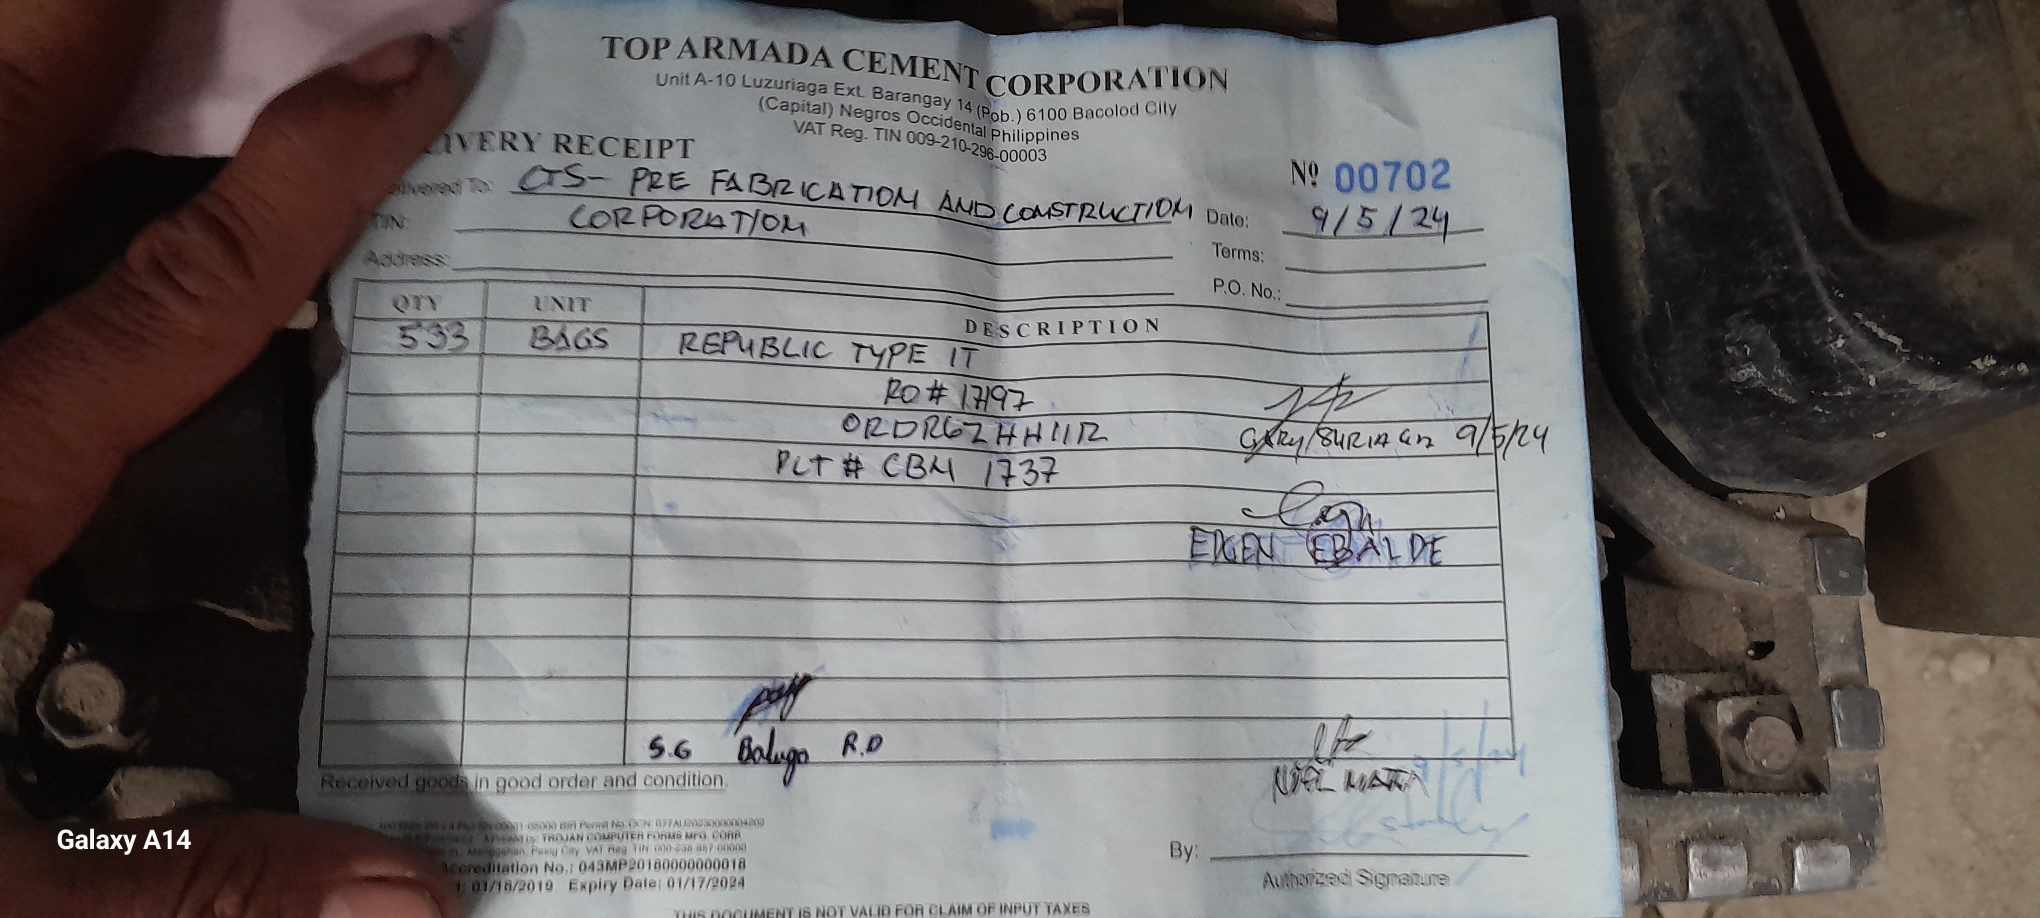 TOP ARMADA CEMENT CORPORATION
Unit A-10 Luzuriaga Ext. Barangay 14 (Pob.) 6100 Bacolod City
(Capital) Negros Occidental Philippines
VAT Reg. TIN 009-210-296-00003
IVERY RECEIPT
Nº 00702
livered To: CTS- PRE FABRICATION AND CONSTRUCTION
CORPORATION
Date: 9/5/24
TIN:
Terms:
Address:
P.O. No.:
QTY UNIT DESCRIPTION
533 BAGS REPUBLIC TYPE 1T
RO# 17197
ORDR6ZHH11R
PLT # CBM 1737
9/5/24
EDGEN EBALDE
S.G Baluga R.D
Received goods in good order and condition.
TROJAN COMPUTER FORMS MFG. CORP.
ccreditation No.: 043MP20180000000018
01/18/2019 Expiry Date: 01/17/2024
By:
Authorized Signature
THIS DOCUMENT IS NOT VALID FOR CLAIM OF INPUT TAXES
Galaxy A14